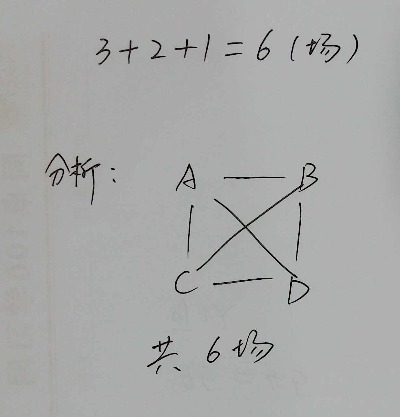 3+2+1=6(场)
分析:
A B
C D
共 6场